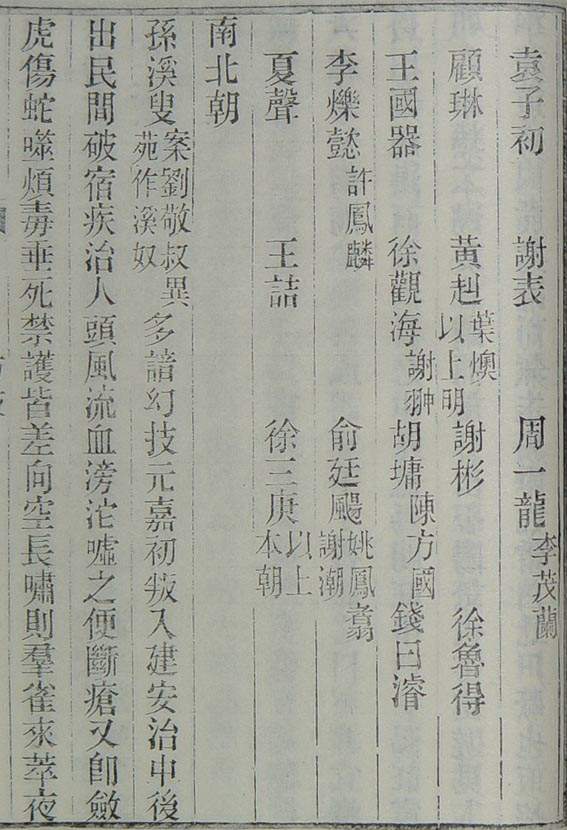 袁子初 謝表 周一龍李茂蘭
顧琳 黃赳葉燠以上明謝彬 徐魯得
王國器 徐觀海謝翀胡墉陳方國錢曰濬
李爍懿許鳳麟 俞廷颺姚鳳翥謝潮
夏聲 王詰 徐三庚以上本朝
南北朝
孫溪叟案劉敬叔異苑作溪奴多諳幻技元嘉初叛入建安治中後
出民間破宿疾治人頭風流血滂沱噓之便斷瘡又卽斂
虎傷蛇噬煩毒垂死禁護皆差向空長嘯則羣雀來萃夜